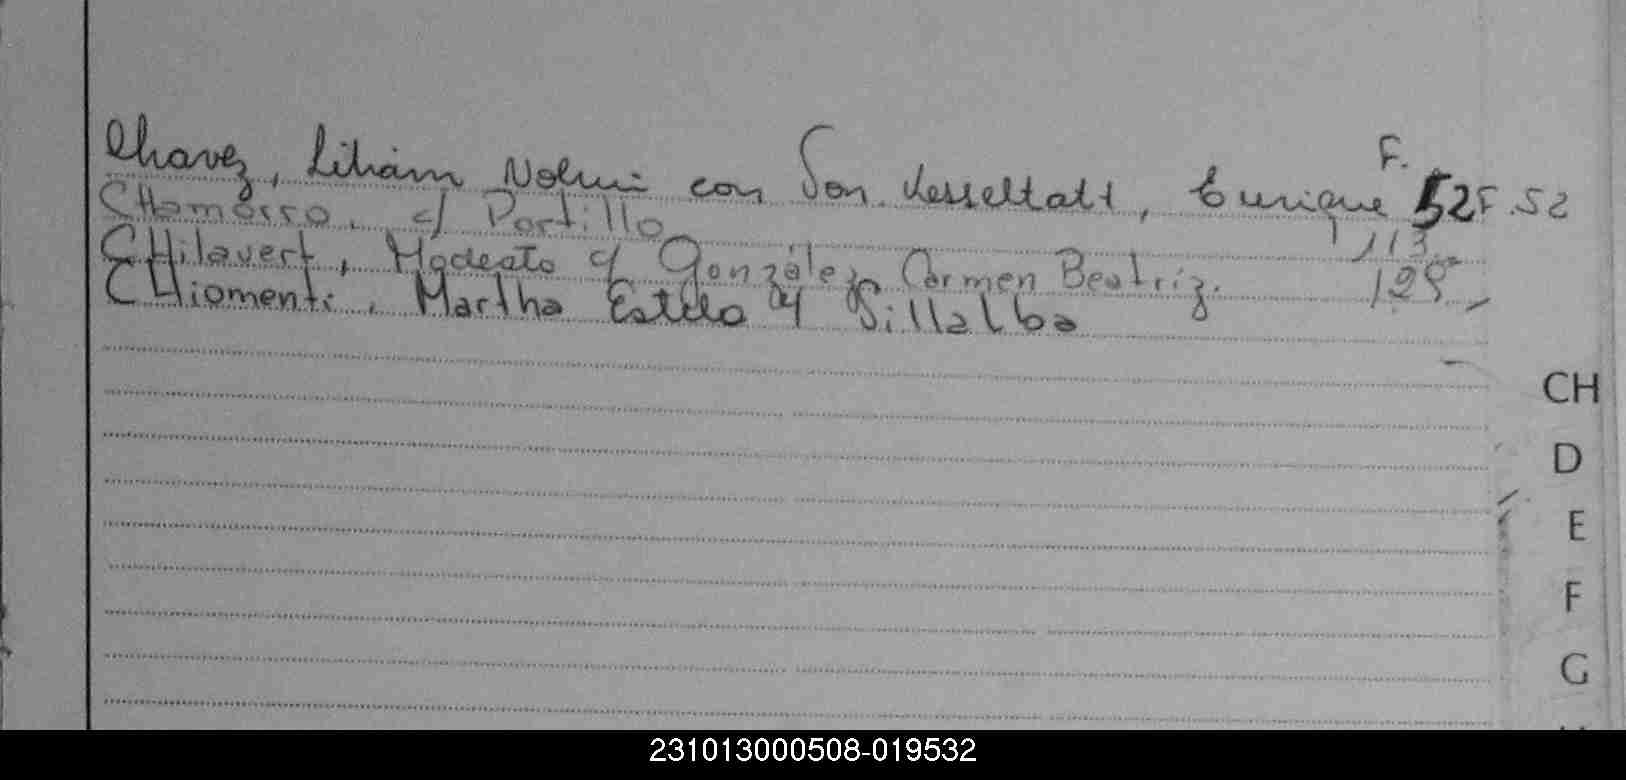 Chavez, Lilián Nolmi con Von. Kesseltatt, Enrique F. 52 F.52
CHamorro, c/ Portillo
CHilavert, Modesto c/ González, Carmen Beatriz. 113
CHiomenti, Martha Estela c/ Villalba 129
CH
D
E
F
G
231013000508-019532